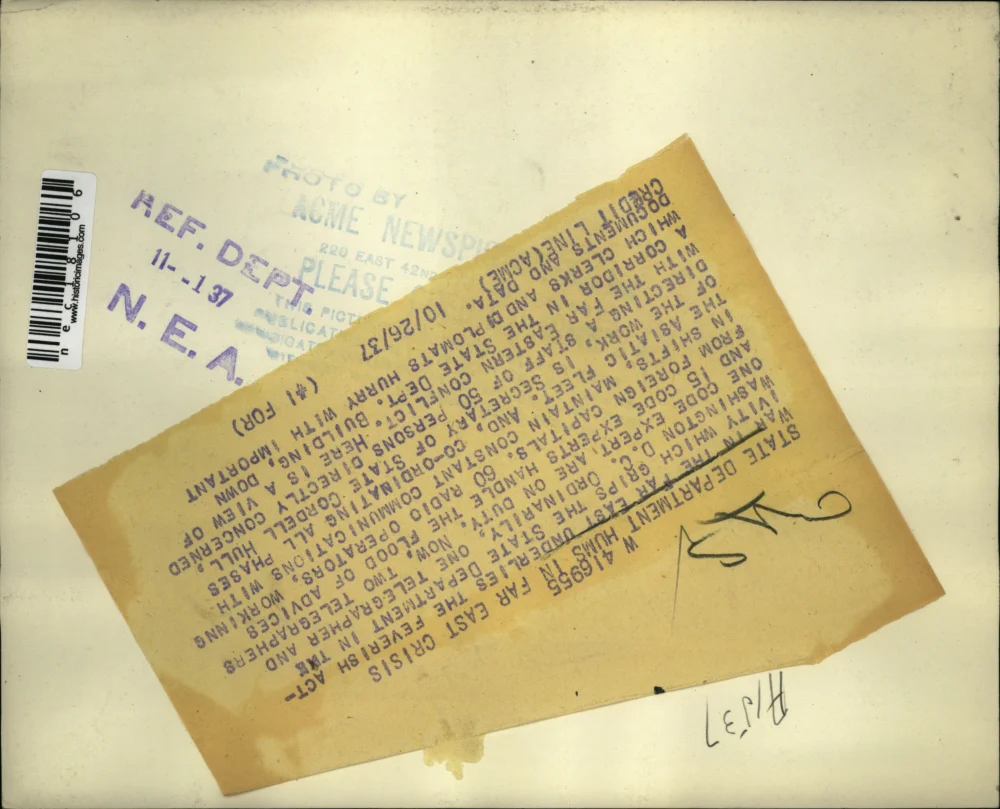 PHOTO BY
ACME NEWSPIC
220 EAST 42N
PLEASE
THIS PICT
REF. DEPT.
11- -1 37
N. E. A.
n e c 1 8 1 0 6
www.historicimages.com
W 416955
STATE DEPARTMENT HUMS IN FAR EAST CRISIS
WAR IN THE FAR EAST UNDERLIES THE FEVERISH ACT-
IVITY WHICH GRIPS THE STATE DEPARTMENT IN
WASHINGTON, D.C. ORDINARILY, ONE TELEGRAPHER AND
ONE CODE EXPERT, ARE ON DUTY. NOW, TWO TELEGRAPHERS
AND 15 CODE EXPERTS HANDLE THE FLOOD OF ADVICES
FROM FOREIGN CAPITALS. 60 RADIO OPERATORS, WORKINNG
IN SHIFTS, MAINTAIN CONSTANT COMMUNICATIONS WITH
THE ASIATIC FLEET. AND, CO-ORDINATING ALL PHASES
OF THE WORK, IS SECRETARY OF STATE CORDELL HULL,
DIRECTING A STAFF OF 50 PERSONS DIRECTLY CONCERNED
WITH THE FAR EASTERN CONFLICT. HERE IS A VIEW OF
A CORRIDOR IN THE STATE DEPT. BUILDING, DOWN
WHICH CLERKS AND DIPLOMATS HURRY WITH IMPORTANT
DOCUMENTS AND DATA.
CREDIT LINE (ACME) 10/26/37 (#1 FOR)